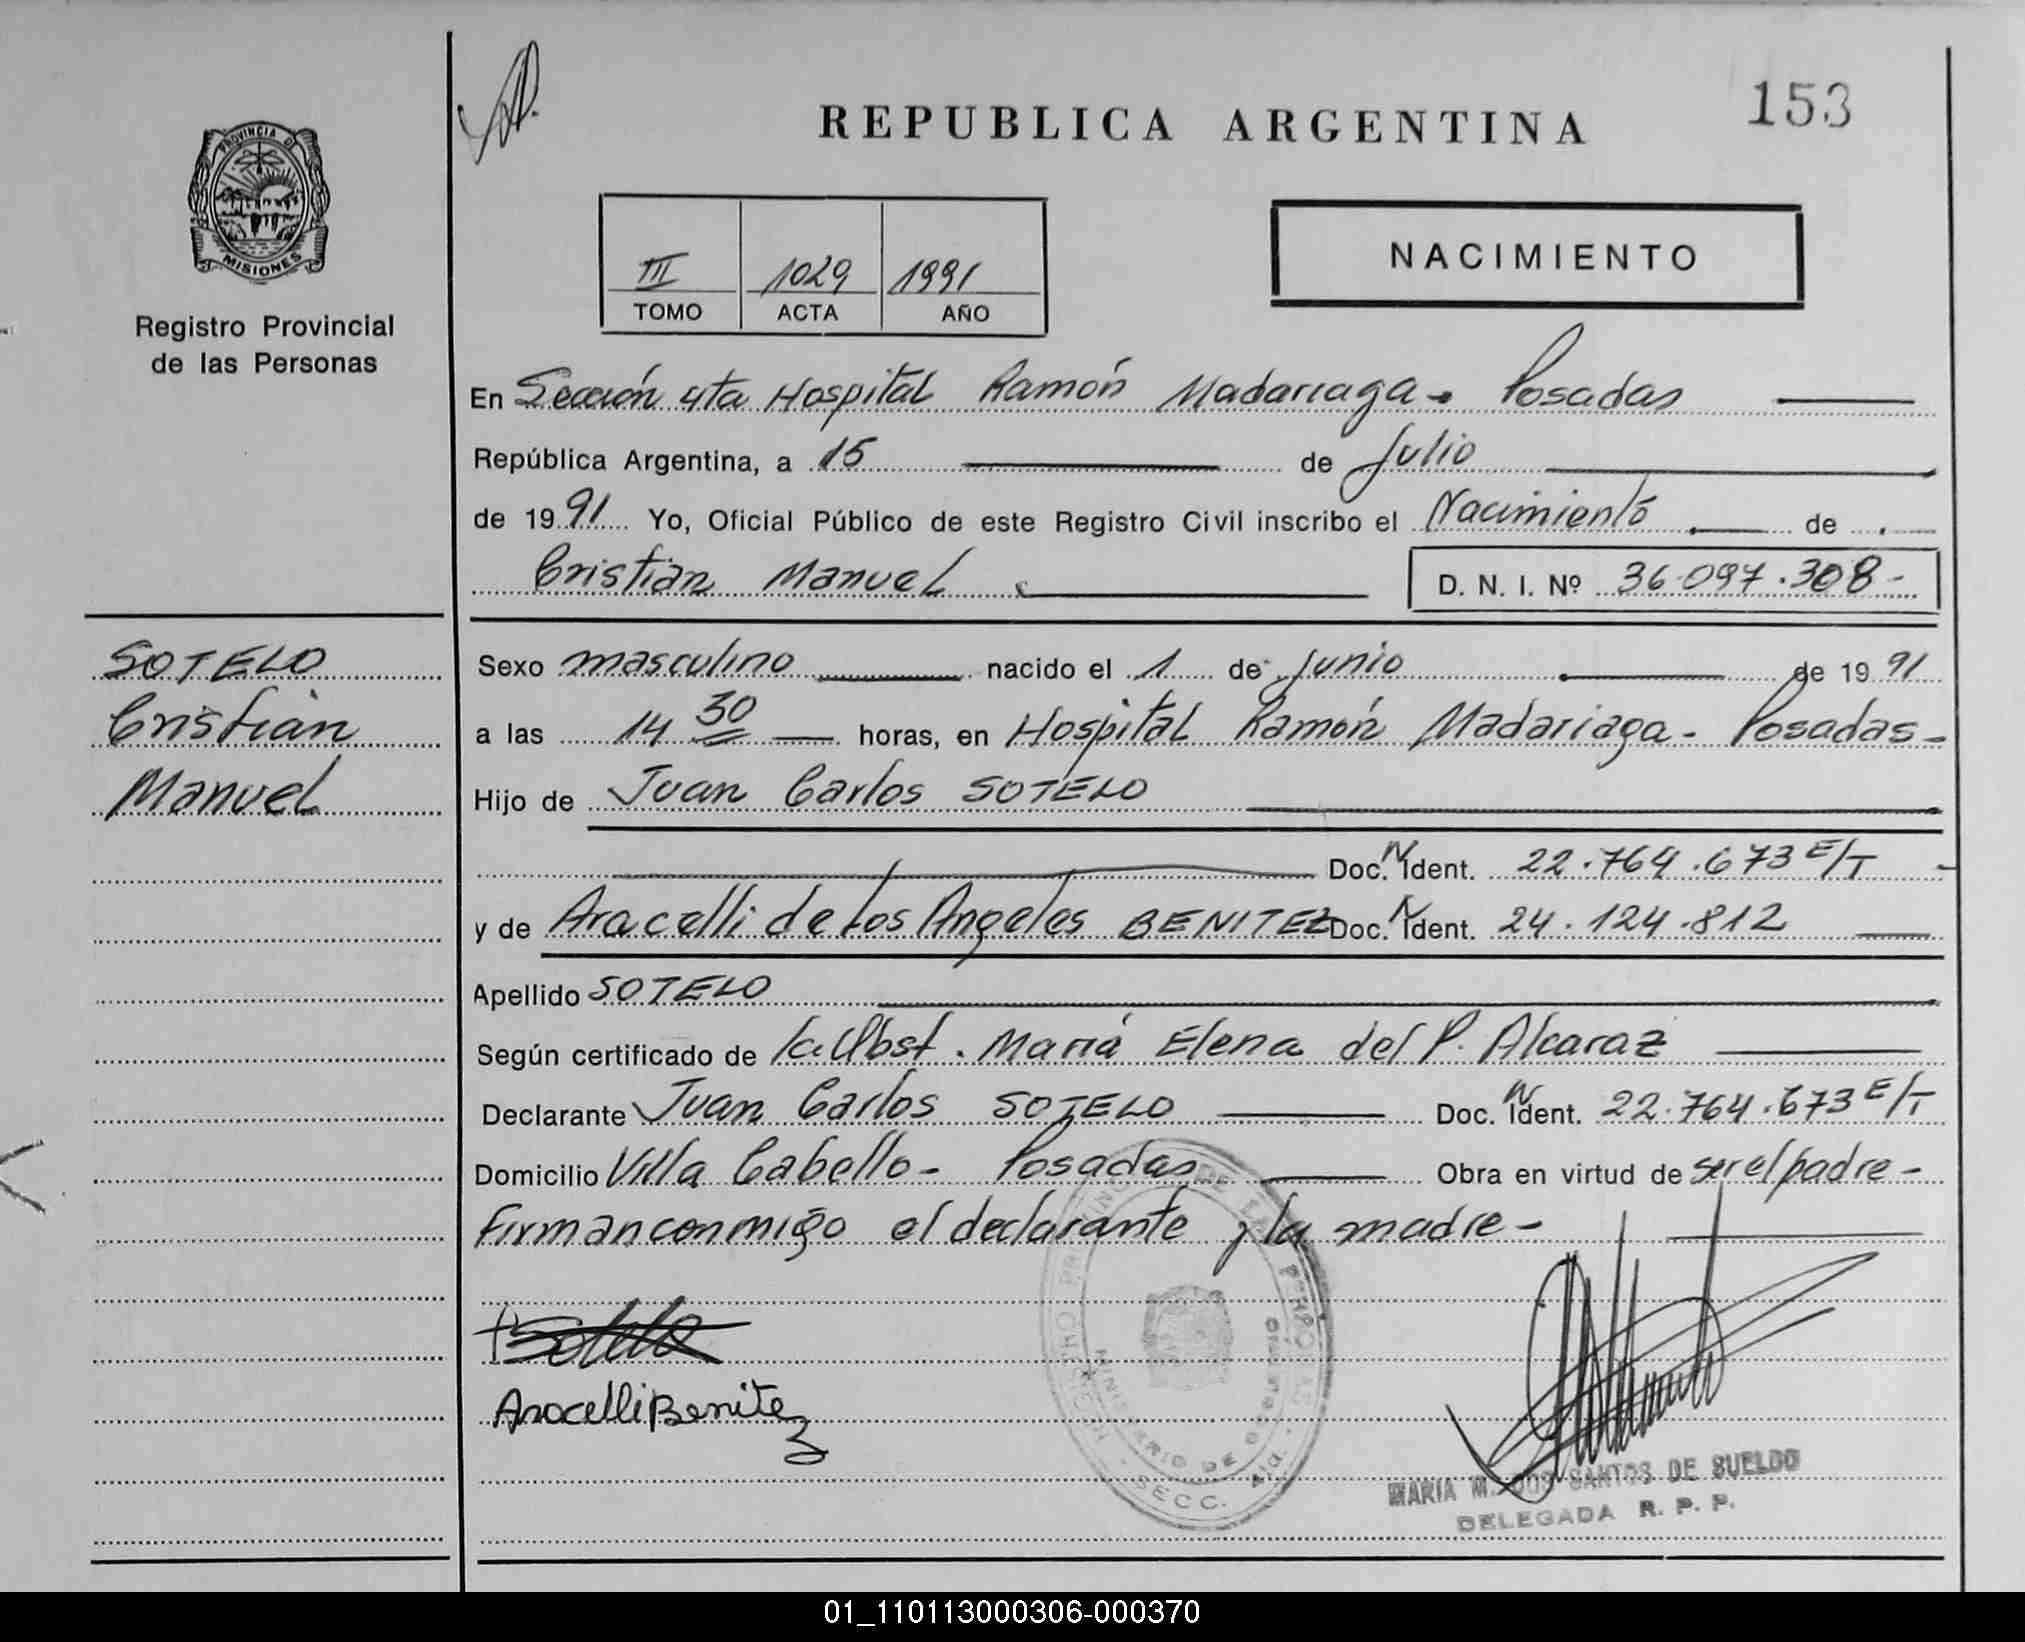 153
REPUBLICA ARGENTINA
PROVINCIA DE
MISIONES
Registro Provincial
de las Personas
III 1029 1991
TOMO ACTA AÑO
NACIMIENTO
En Sección 4ta Hospital Ramón Madariaga - Posadas
República Argentina, a 15 de Julio
de 1991 Yo, Oficial Público de este Registro Civil inscribo el Nacimiento de
Cristian Manuel D. N. I. Nº 36.097.308-
SOTELO
Cristian
Manuel
Sexo masculino nacido el 1 de Junio de 1991
a las 14 30 horas, en Hospital Ramón Madariaga - Posadas -
Hijo de Juan Carlos SOTELO
Doc. N Ident. 22.764.673 E/T
y de Aracelli de Los Angeles BENITEZ Doc. N Ident. 24.124.812
Apellido SOTELO
Según certificado de la Obst. María Elena del P. Alcaraz
Declarante Juan Carlos SOTELO Doc. N Ident. 22.764.673 E/T
Domicilio Villa Cabello - Posadas Obra en virtud de ser el padre -
firman conmigo el declarante y la madre -
Sotelo
Aracelli Benitez
MINISTERIO DE GOBIERNO
SECC. 4ta.
MARIA M. DOS SANTOS DE SUELDO
DELEGADA R. P. P.
01_110113000306-000370